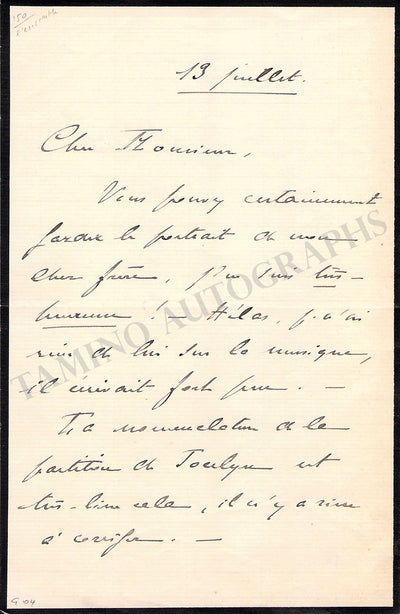 '50
l'ensemble
13 juillet.
Cher Monsieur,
Vous pouvez certainement
garder le portrait de mon
cher frère, j'en suis très-
heureuse ! — Hélas, je n'ai
rien de lui sur la musique,
il écrivait fort peu. —
La nomenclature de la
partition de Jocelyn est
très-bien cela, il n'y a rien
à corriger. —
TAMINO AUTOGRAPHS
G 04